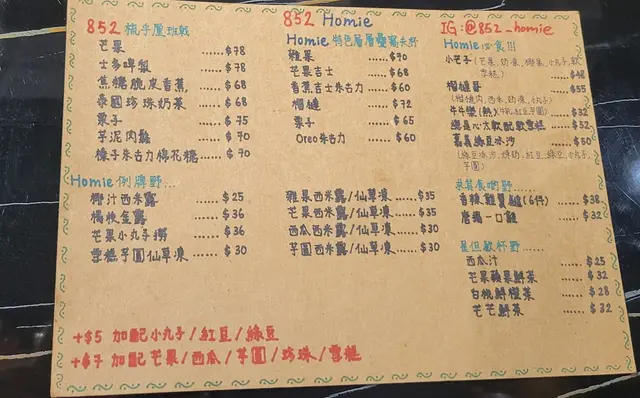 852 梳乎厘班戟
芒果 ..... $78
士多啤梨 ..... $78
焦糖脆皮香蕉 ..... $68
泰國珍珠奶茶 ..... $68
栗子 ..... $75
芋泥肉鬆 ..... $70
榛子朱古力棉花糖 ..... $70
852 Homie
Homie 特色層層疊
雜果 ..... $70
芒果吉士 ..... $68
香蕉吉士朱古力 ..... $60
榴槤 ..... $72
栗子 ..... $65
Oreo朱古力 ..... $60
IG:@852_homie
Homie 必食!!!
小芒子(芒果,奶凍,椰果,小丸子,軟雪糕) ..... $48
榴槤哥 ..... $55
(榴槤肉,西米,奶凍,小丸子)
牛牛樂(熱)(牛乳,紅豆,芋圓) $32
..... $32
嘉義綠豆冰沙 ..... $50
Homie 例牌野...
椰汁西米露 ..... $25
楊枝金露 ..... $36
芒果小丸子撈 ..... $36
雪糕芋圓仙草凍 ..... $30
雜果西米露/仙草凍 ..... $35
芒果西米露/仙草凍 ..... $35
西瓜西米露/仙草凍 ..... $30
芋圓西米露/仙草凍 ..... $30
香辣雞翼鎚(6件) ..... $38
唐揚一口雞 ..... $32
西瓜汁 ..... $25
芒果蘋果鮮茶 ..... $32
白桃鮮橙茶 ..... $28
芒芒鮮茶 ..... $32
+$5 加配小丸子/紅豆/綠豆
+$7 加配芒果/西瓜/芋圓/珍珠/雪糕